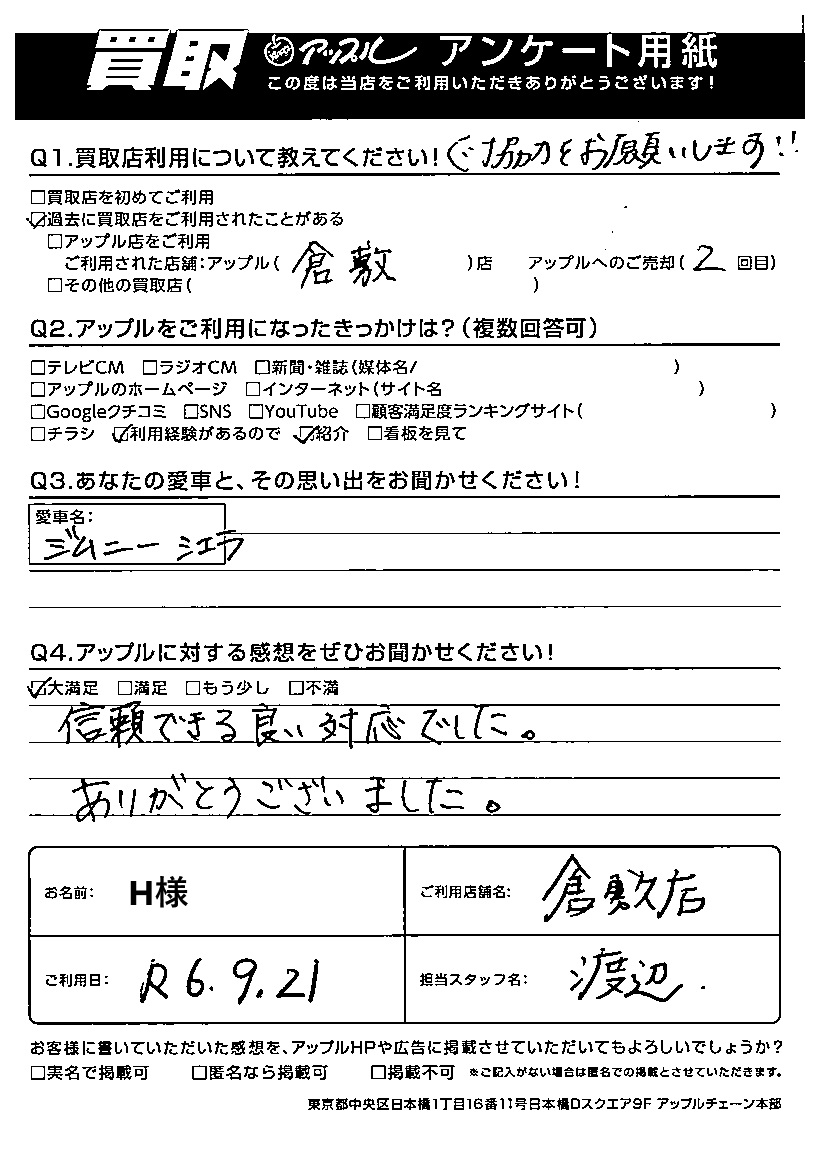 買取 アップル アンケート用紙
この度は当店をご利用いただきありがとうございます!
Q1.買取店利用について教えてください! ご協力をお願いします!!
□買取店を初めてご利用
☑過去に買取店をご利用されたことがある
□アップル店をご利用
ご利用された店舗:アップル( 倉敷 )店 アップルへのご売却( 2 回目)
□その他の買取店( )
Q2.アップルをご利用になったきっかけは?(複数回答可)
□テレビCM □ラジオCM □新聞・雑誌(媒体名/ )
□アップルのホームページ □インターネット(サイト名 )
□Googleクチコミ □SNS □YouTube □顧客満足度ランキングサイト( )
□チラシ ☑利用経験があるので ☑紹介 □看板を見て
Q3.あなたの愛車と、その思い出をお聞かせください!
愛車名:
ジムニー シエラ
Q4.アップルに対する感想をぜひお聞かせください!
☑大満足 □満足 □もう少し □不満
信頼できる良い対応でした。
ありがとうございました。
お名前: H様 ご利用店舗名: 倉敷店
ご利用日: R6.9.21 担当スタッフ名: 渡辺.
お客様に書いていただいた感想を、アップルHPや広告に掲載させていただいてもよろしいでしょうか?
□実名で掲載可 □匿名なら掲載可 □掲載不可 ※ご記入がない場合は匿名での掲載とさせていただきます。
東京都中央区日本橋1丁目16番11号日本橋Dスクエア9F アップルチェーン本部